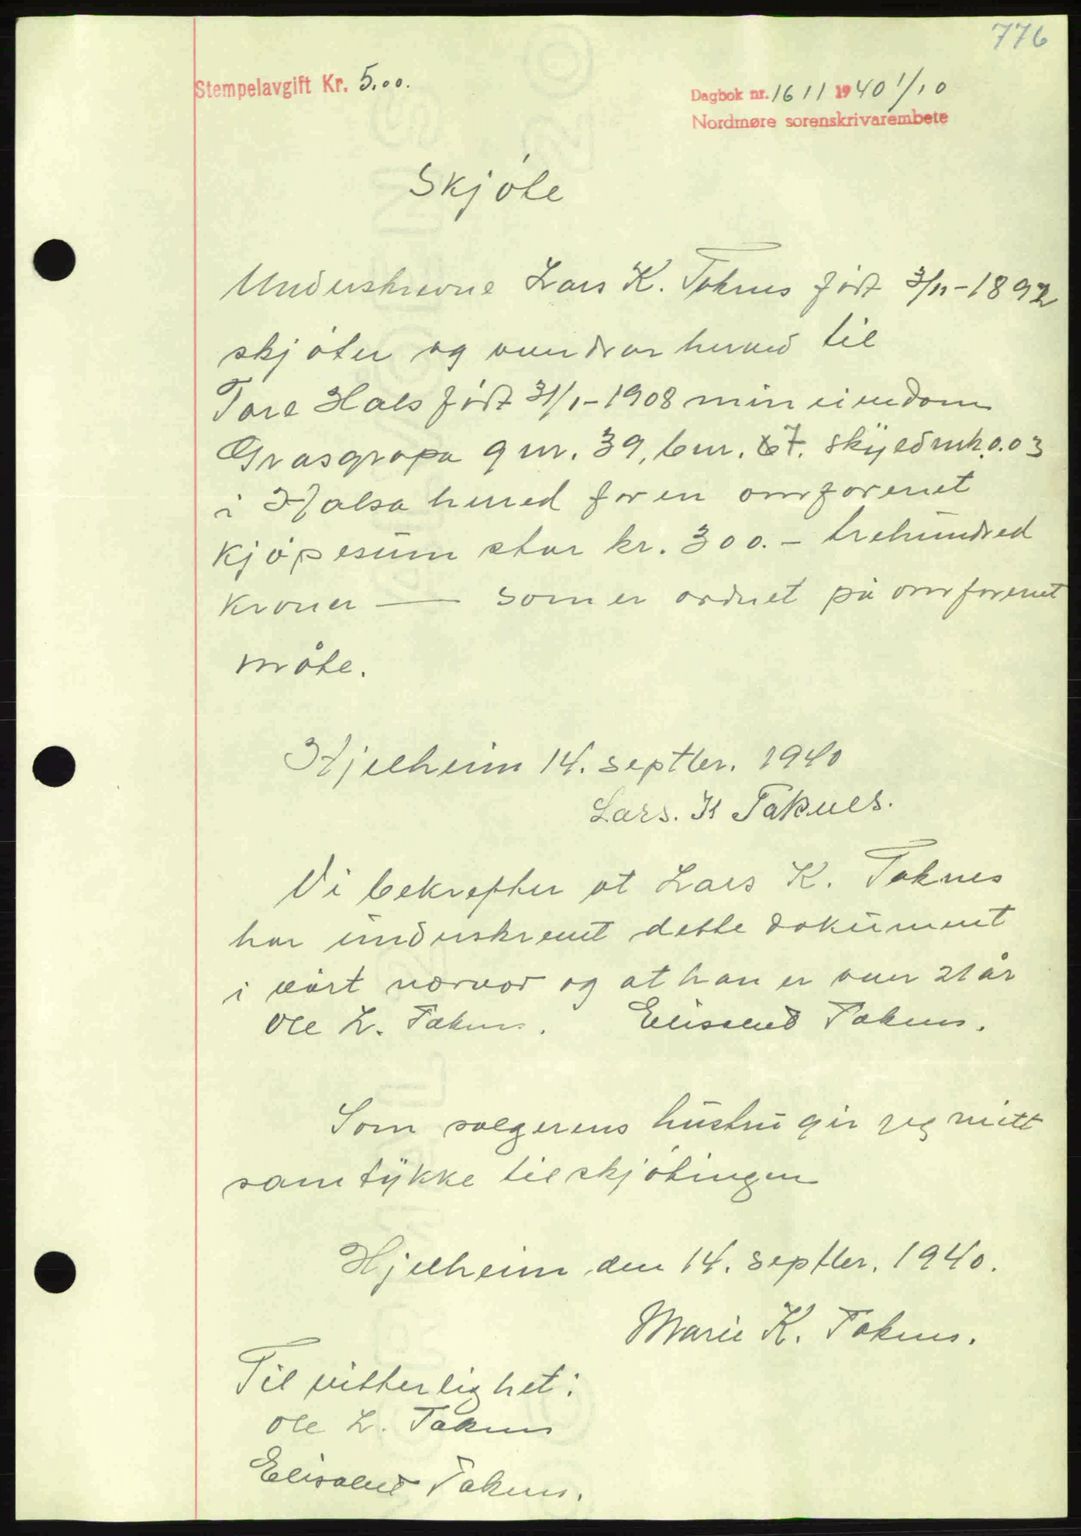 776
Stempelavgift Kr. 5.00.
Dagbok nr. 1611 1940 1/10
Nordmøre sorenskrivarembete
Skjóte
Underskrevne Lars K. Taknes født 3/11-1892
skjóter og overdrar herved til
Tore Hals født 31/1-1908 min eiendom
Grasgropa gnr. 39, bnr. 67. skyldmk. 0.03
i Halsa herred for en omforenet
kjópesum stor kr. 300.- trehundred
kroner — som er ordnet på omforenet
måte.
Hjelheim 14. septbr. 1940
Lars. K Taknes.
Vi bekrefter at Lars K. Taknes
har underskrevet dette dokument
i vårt nærvær og at han er over 21 år
Ole L. Taknes. Elisabed Taknes.
Som selgerens hustru gir jeg mitt
samtykke til skjótingen
Hjelheim den 14. septbr. 1940.
Marie K. Taknes.
Til vitterlighet:
Ole L. Taknes
Elisabed Taknes.